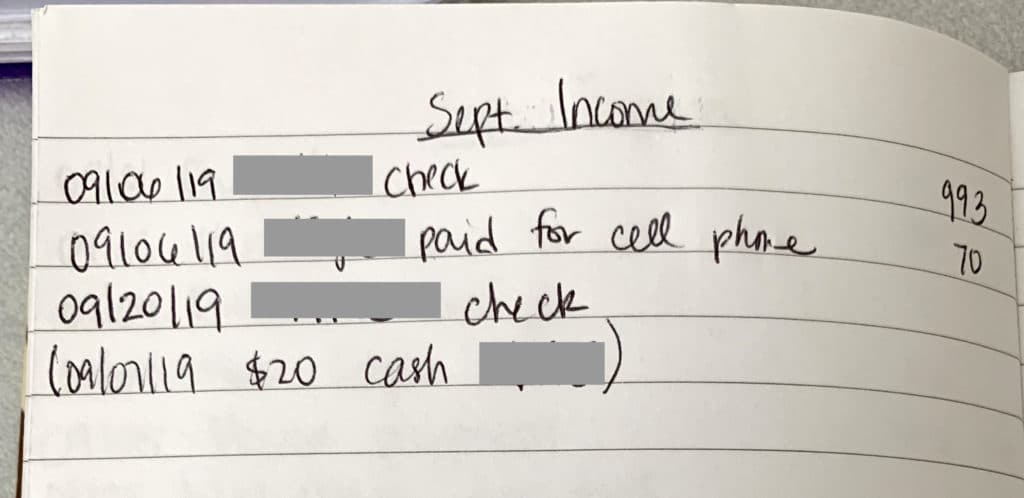 Sept. Income
09/06/19 check 993
09/06/19 paid for cell phone 70
09/20/19 check
(09/07/19 $20 cash )